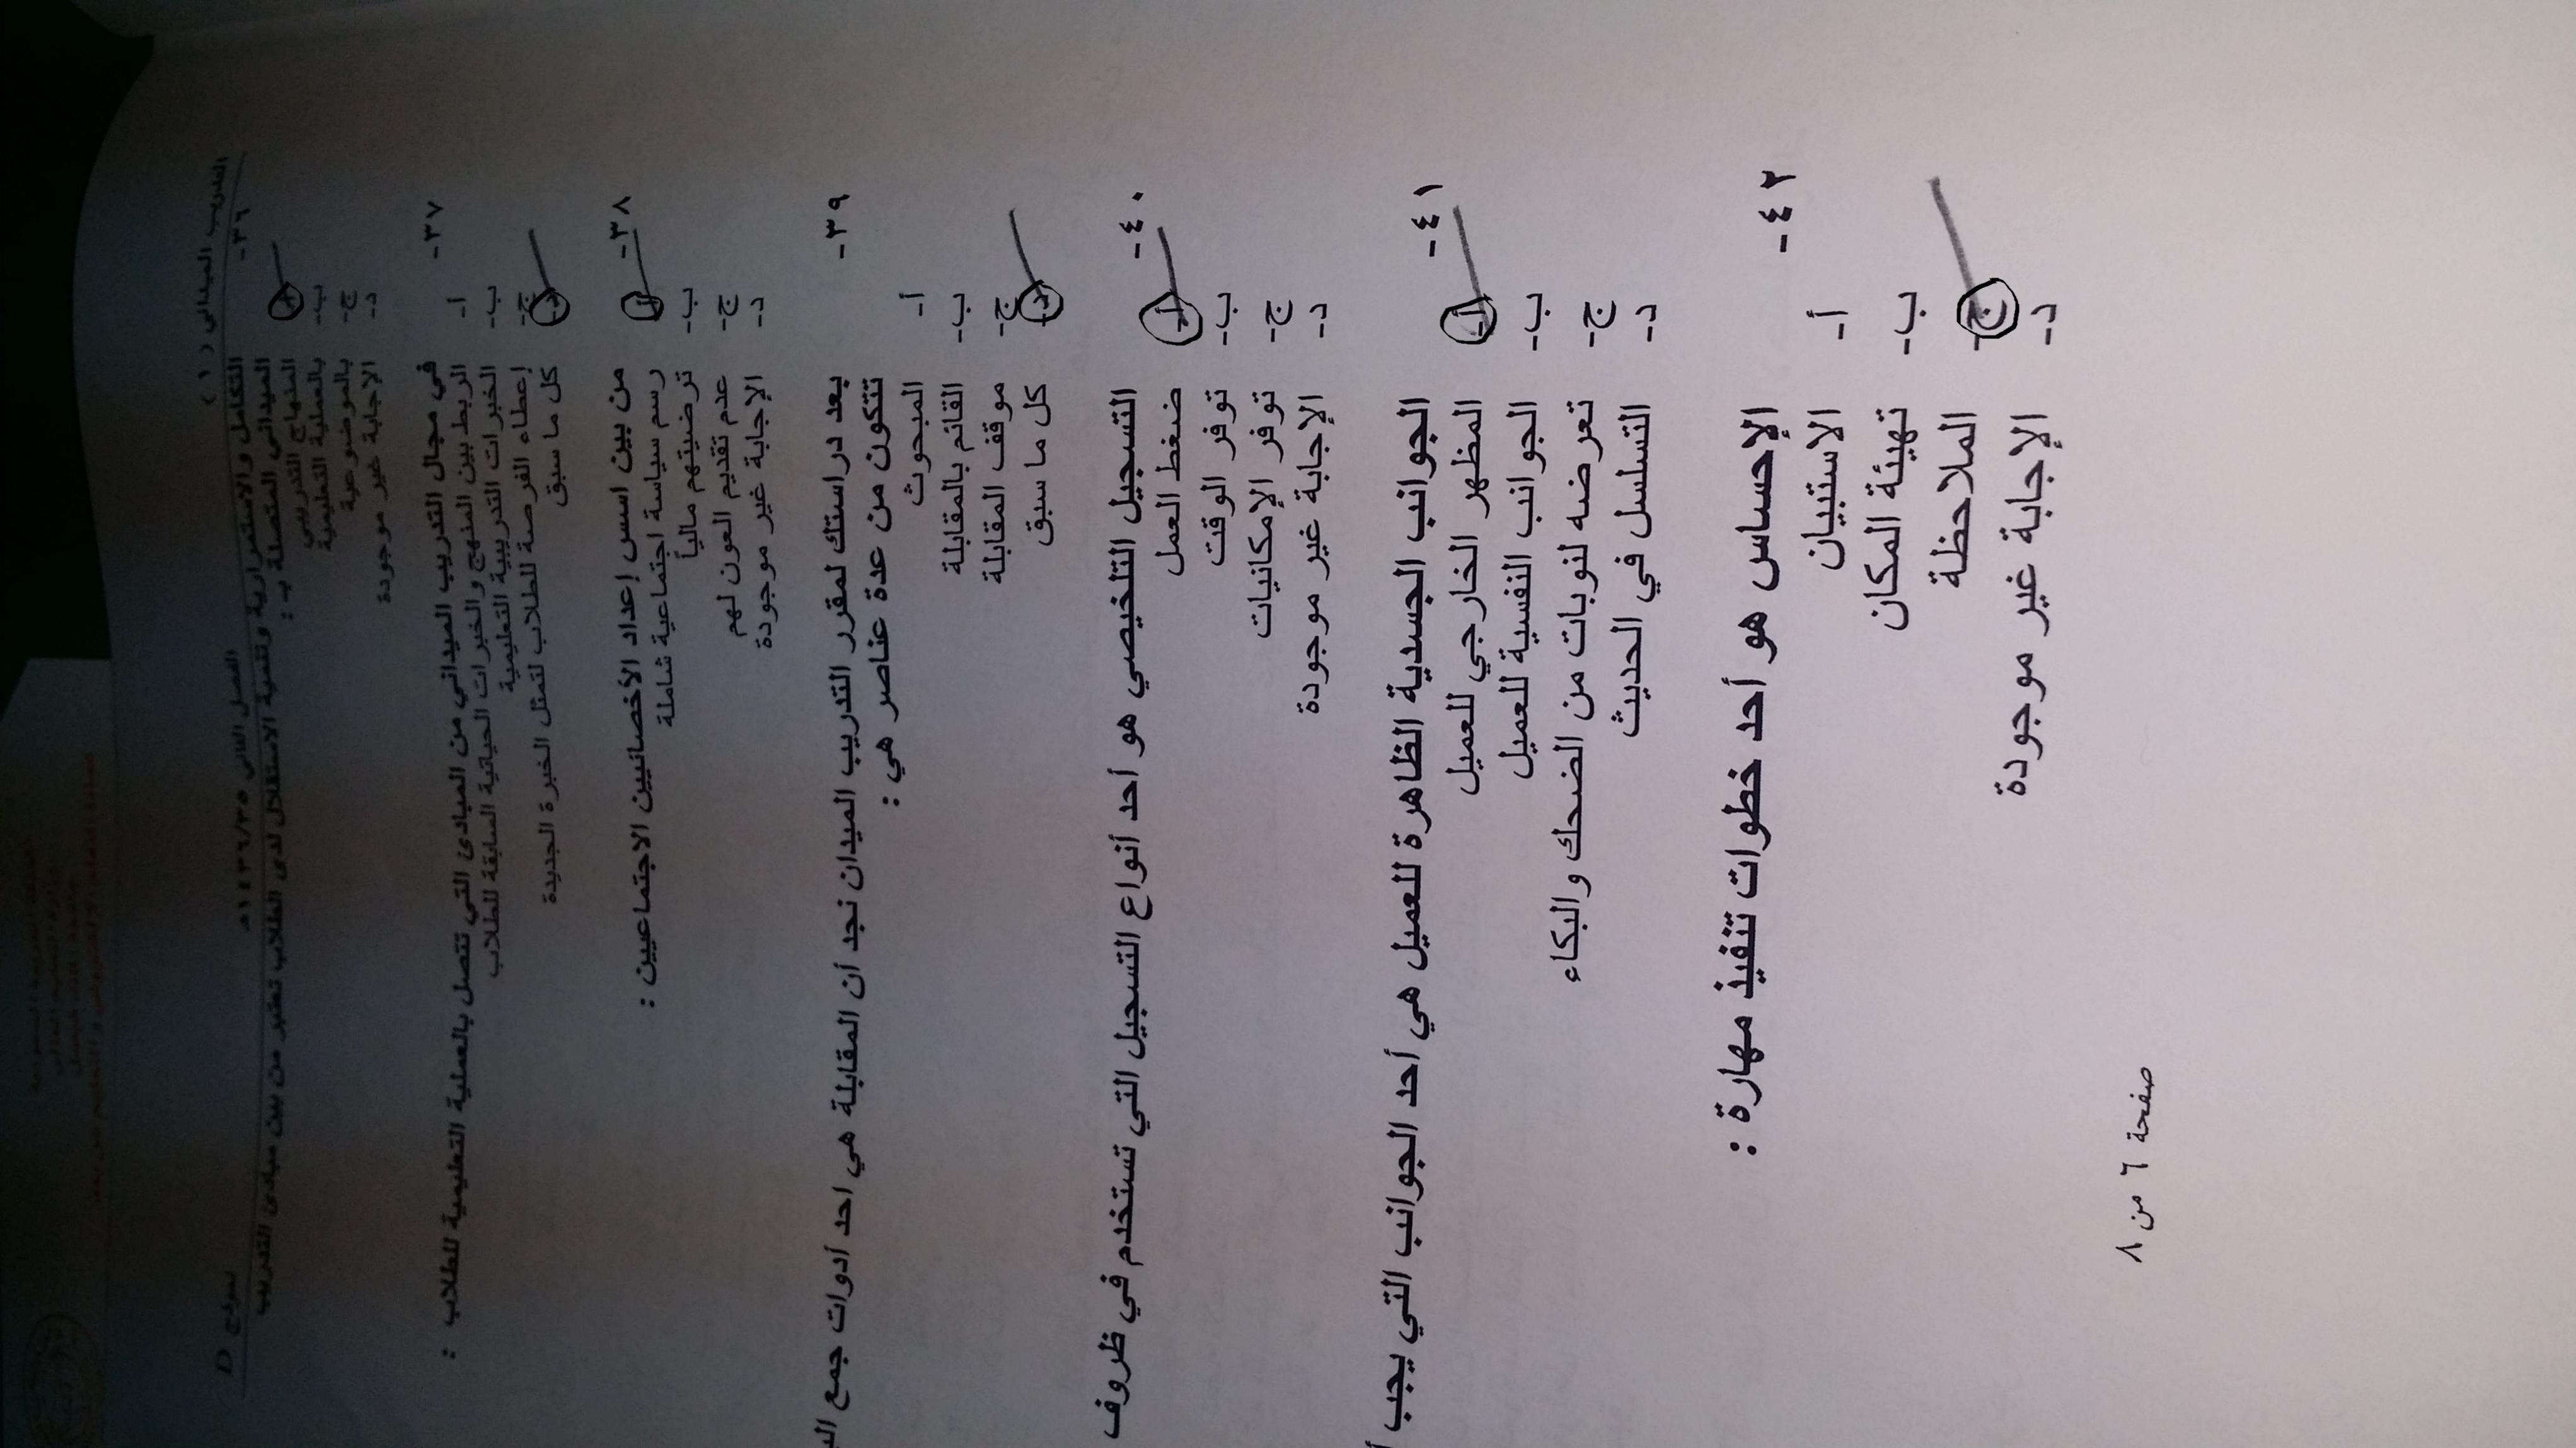 التدريب الميداني ( ١ )
الفصل الثاني ١٤٣٦/٣٥هـ
نموذج D
٣٦- التكامل والاستمرارية وتنمية الاستقلال لدى الطلاب تعتبر من بين مبادئ التدريب
الميداني المتصلة بـ :
أ- المنهاج التدريبي
ب- بالعملية التعليمية
ج- بالموضوعية
د- الإجابة غير موجودة
٣٧- في مجال التدريب الميداني من المبادئ التي تتصل بالعملية التعليمية للطلاب :
أ- الربط بين المنهج والخبرات الحياتية السابقة للطلاب
ب- الخبرات التدريبية التعليمية
ج- إعطاء الفرصة للطلاب لتمثل الخبرة الجديدة
د- كل ما سبق
٣٨- من بين اسس إعداد الأخصائيين الاجتماعيين :
أ- رسم سياسة اجتماعية شاملة
ب- ترضيتهم مالياً
ج- عدم تقديم العون لهم
د- الإجابة غير موجودة
٣٩- بعد دراستك لمقرر التدريب الميدان نجد أن المقابلة هي احد أدوات جمع
تتكون من عدة عناصر هي :
أ- المبحوث
ب- القائم بالمقابلة
ج- موقف المقابلة
د- كل ما سبق
٤٠- التسجيل التلخيصي هو أحد أنواع التسجيل التي تستخدم في ظروف
أ- ضغط العمل
ب- توفر الوقت
ج- توفر الإمكانيات
د- الإجابة غير موجودة
٤١- الجوانب الجسدية الظاهرة للعميل هي أحد الجوانب التي يجب
أ- المظهر الخارجي للعميل
ب- الجوانب النفسية للعميل
ج- تعرضه لنوبات من الضحك والبكاء
د- التسلسل في الحديث
٤٢- الإحساس هو أحد خطوات تنفيذ مهارة :
أ- الاستبيان
ب- تهيئة المكان
ج- الملاحظة
د- الإجابة غير موجودة
صفحة ٦ من ٨